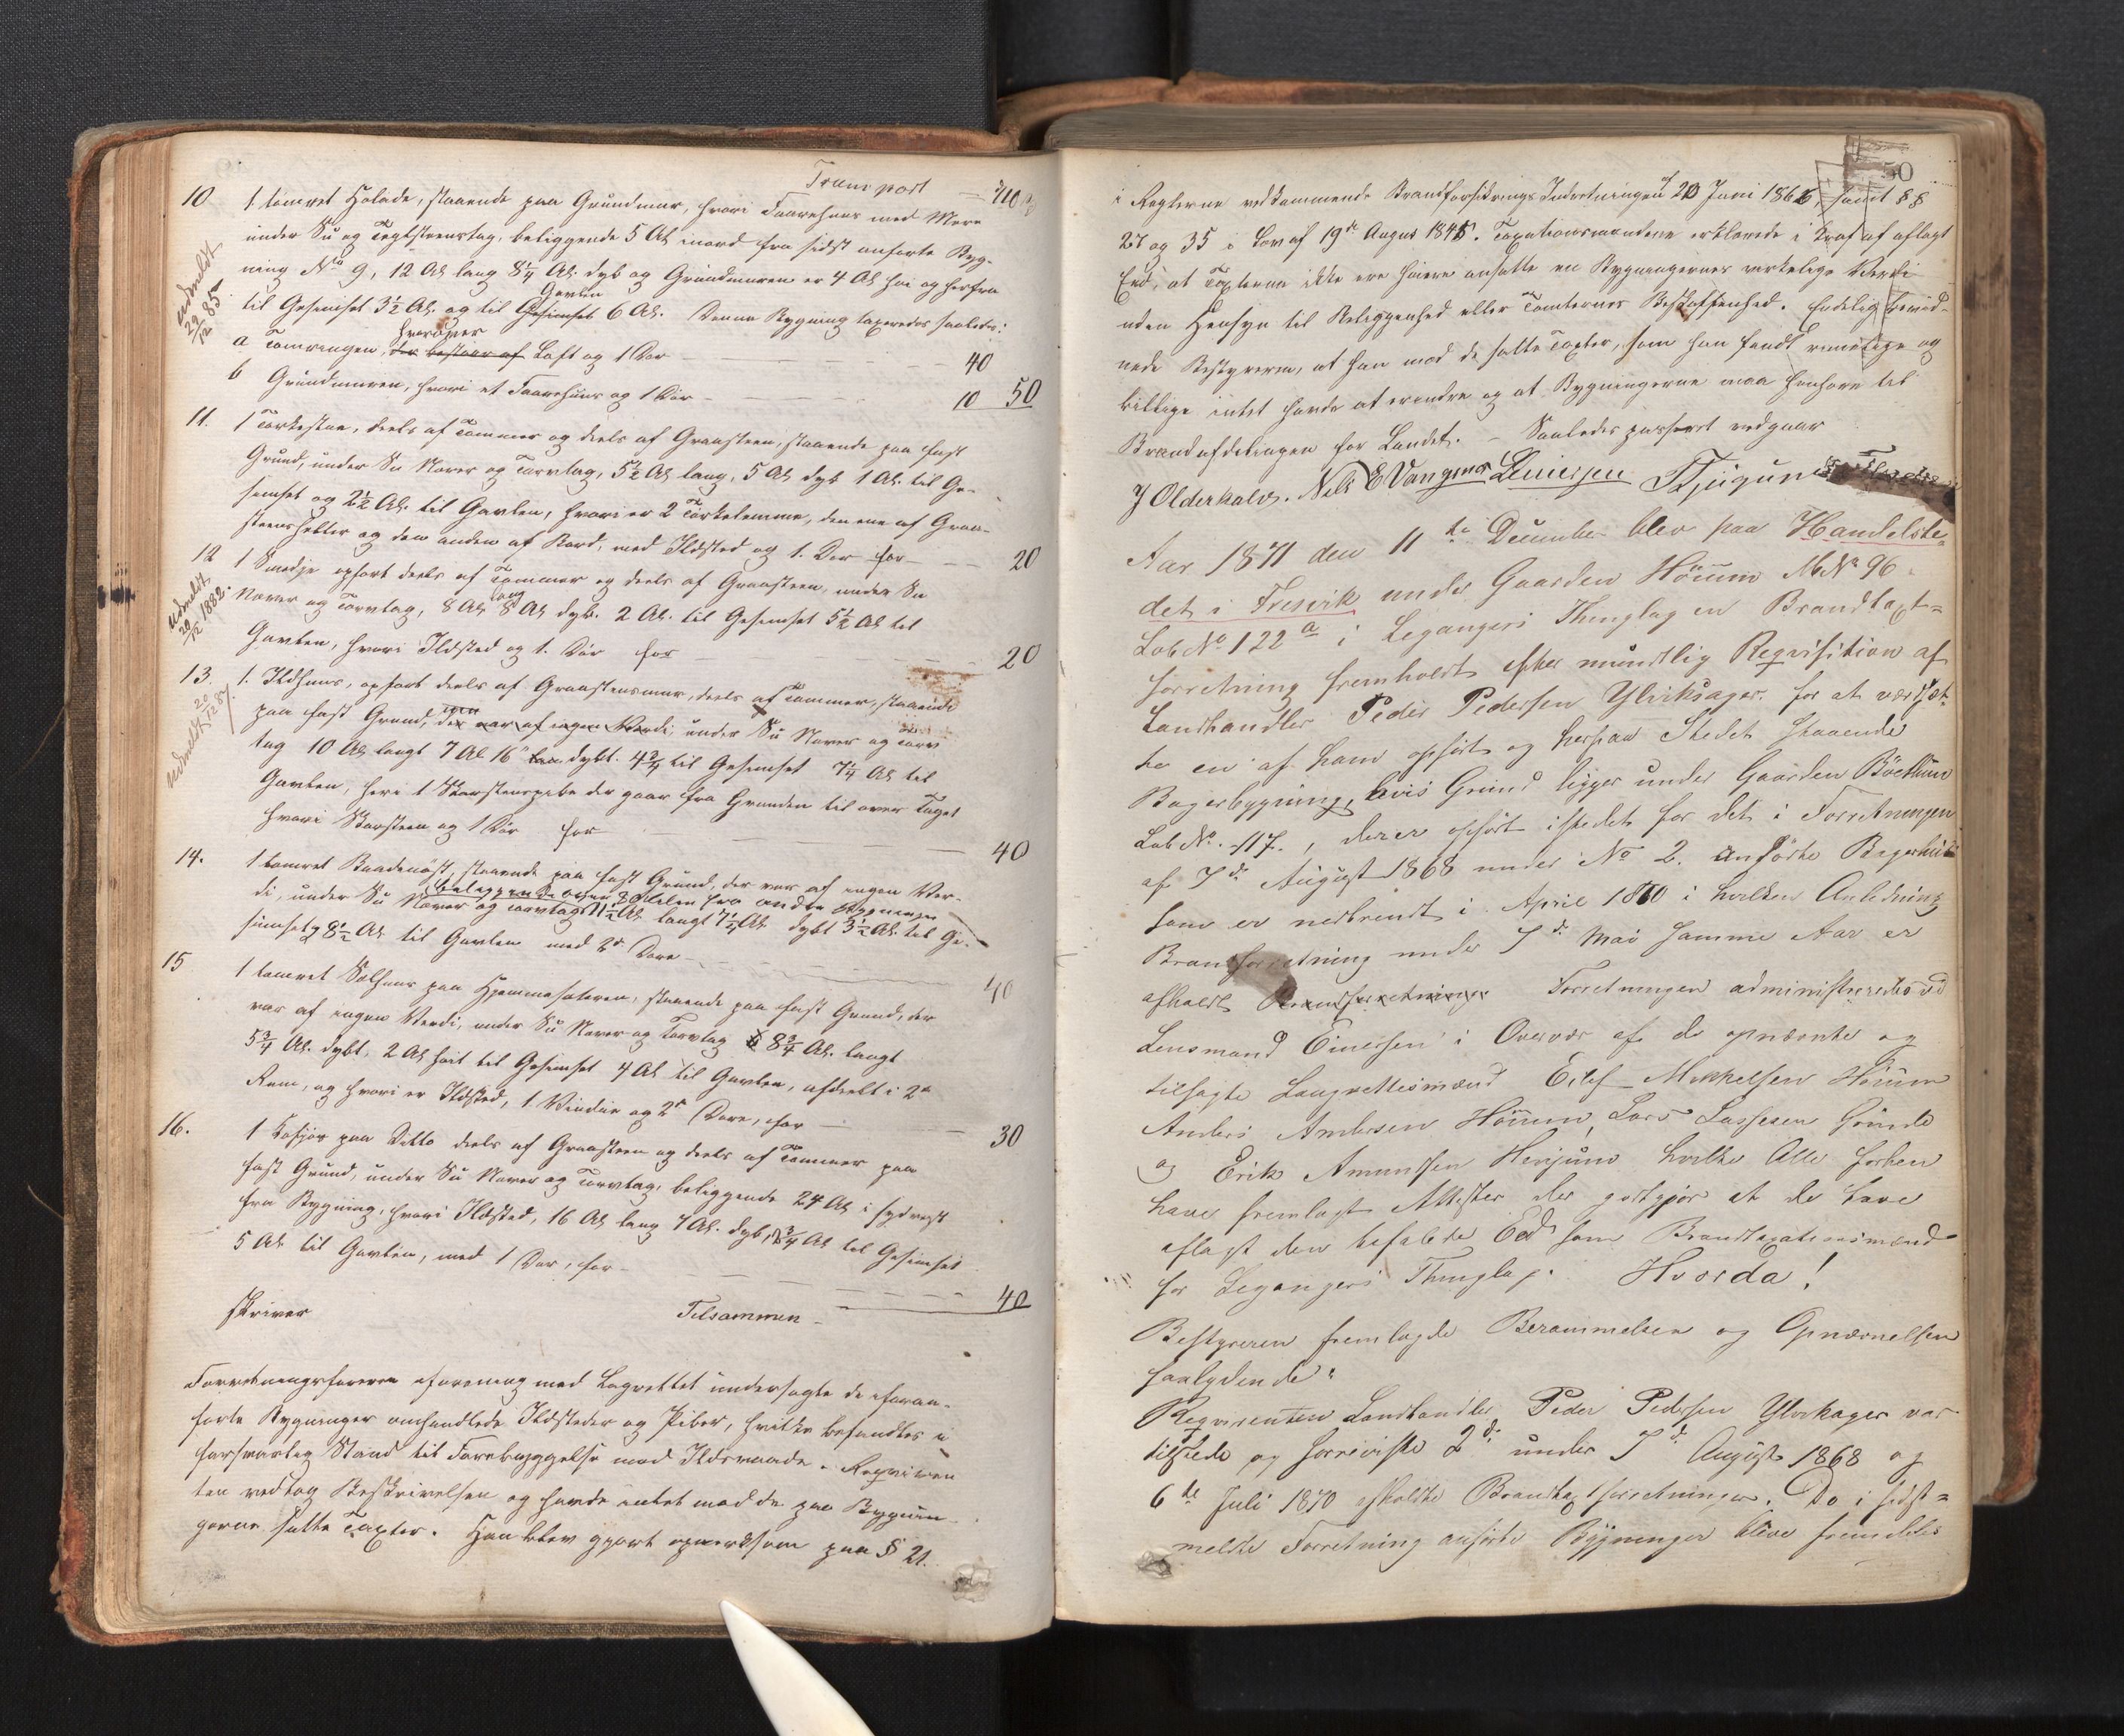 Transport — 710
10 1 tømret Hølade, staaende paa Grundmur, hvori Faarehuus med Mere
under Su og Teglsteenstag, beliggende 5 Al. i nord fra sidst anførte Byg-
ning No 9, 12 Al. lang 8¼ Al. dyb og Grundmuren er 4 Al høi og herfra
Gavlen
til Gesimset 3½ Al. og til Gesimset 6 Al. Denne Bygning taxeredes saaledes:
hvorover
a Tømringen, der bestaar af Loft og 1 Dør — 40
b Grundmuren, hvori et Faarehuus og 1 Dør — 10 50
Udmeldt 29/12 85
11. 1 Tørkestue, deels af Tømmer og deels af Graasteen, staaende paa fast
Grund, under Su Næver og Torvtag, 5½ Al lang, 5 Al dyb 1 Al. til Ge-
simset og 2½ Al. til Gavlen, hvori er 2 Tørkelemme, den ene af Graa-
steensheller og den anden af Bord, med Ildsted og 1. Dør for — 20
12 1 Smedje opført deels af Tømmer og deels af Graasteen, under Su
Næver og Torvtag, 8 Al. lang 8 Al dyb. 2 Al. til Gesimset 5½ Al til
Gavlen, hvori Ildsted og 1. Dør for — 20
Udmeldt 20/12 1882
13. 1. Ildhuus, opført deels af Graasteensmur, deels af Tømmer, staaende
paa fast Grund, der var af ingen Værdi, under Su Næver og Torv
tag 10 Al. langt 7 Al 16" dybt. 4¾ til Gesimset 7¼ Al til
Gavlen, heri 1 Skorsteenspibe der gaar fra Grunden til over Taget
hvori Skorsteen og 1 Dør for — 40
Udmeldt 20/12 87.
14. 1 tømret Baadenøst, staaende paa fast Grund, der var af ingen Vær-
beliggende over 80 Alen fra andre Bygninger
di, under Su Næver og Torvtag 11½ Al. langt 7¼ Al dybt 3½ Al. til Ge-
simset og 8½ Al til Gavlen med 2de Døre — 40
15 1 tømret Selhuus paa Hjemmesæteren, staaende paa fast Grund, der
var af ingen Værdi, under Su Næver og Torvtag 8¾ Al. langt
5¾ Al. dybt, 2 Al høit til Gesimset 4 Al til Gavlen, afdeelt i 2de
Rum, og hvori er Ildsted, 1 Vindue og 2de Døre, for — 30
16. 1 Kofjør paa Ditto deels af Graasteen og deels af Tømmer paa
fast Grund, under Su Næver og Torvtag, beliggende 24 Al i sydvest
fra Bygning, hvori Ildsted, 16 Al lang 7 Al. dyb, ¾ Al til Gesimset
5 Al til Gavlen, med 1 Dør, for — 40
skriver Tilsammen —
Forretningsføreren eforening med Lagrettet undersøgte de eforan-
førte Bygninger omhandlede Ildsteder og Piber, hvilke befandtes i
forsvarlig Stand til Forebyggelse mod Ildsvaade. Reqviren
ten vedtog Beskrivelsen og havde intet mod de paa Bygnin-
gerne satte Taxter. Han blev gjort opmærksom paa § 21.
50
i Reglerne vedkommende Brandforsikrings Indretningen af 20 Juni 1866, samt §§
27 og 35 i Lov af 19de August 1845. Taxationsmændene erklærede i Kraf af aflagt
Eed, at Taxterne ikke ere høiere ansatte en Bygningernes virkelige Værdi
uden Hensyn til Beliggenhed eller Tomternes Beskaffenhed. Endelig bevid-
nede Bestyreren, at han mod de satte Taxter, som han fandt rimelige og
billige intet havde at erindre og at Bygningerne maa henhøre til
Brandafdelingen for Landet. – Saaledes passeret vedgaar
J Olderhalds. Nils E Vangsnes Einersen
Aar 1871 den 11te December blev paa Handelste-
det i Fresvik under Gaarden Höium MNo 96.
Lob No 122 a i Legangers Thinglag en Brandtaxt=
forretning fremholdt efter mundtlig Reqvisition af
Landhandler Peder Pedersen Ylviksager for at værdsæt-
te en af ham opført og herpaa Stedet staaende
Bagerbygning, hvis Grund ligger under Gaarden Böthun
Lob No. 117., derer opført istedet for det i Forretningen
af 7de August 1868 under No 2. anførte Bagerhuus
som er nedbrændt i April 1870 i hvilken Anledning
Brandforretning under 7de Mai samme Aar er
afholdt Brandforretninge. Forretningen administreredes ved
Lensmand Einersen i Overvær af de opnævnte og
tilsagte Laugrettesmænd Eilef Mikkelsen Höium
Anders Andersen Höium, Lars Lassesen Grinde
og Erik Amundsen Henjum hvilke Alle forhen
have fremlagt Attester der godtgjør at de have
aflagt den befalede Eed som Brandtaxationsmænd
for Legangers Thinglag. Hvorda!
Bestyreren fremlagde Berammelsen og Opnævnelsen
saalydende:
Reqvirenten Landhandler Peder Pedersen Ylviksager var
tilstede og foreviste 2de under 7de August 1868 og
6te Juli 1870 afholdte Brandtaxtforretninger. De i sidst=
meldte Forretning anførte Bygninger blive fremdeles